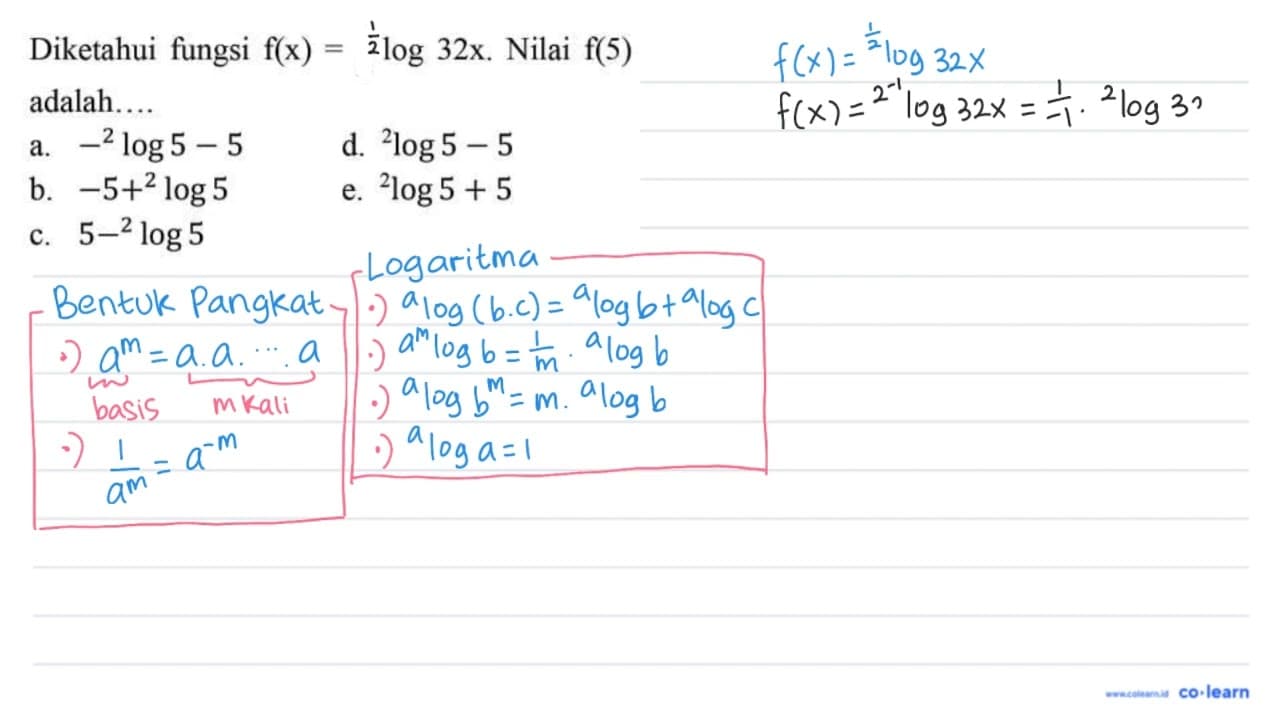 Diketahui fungsi f(x) = ½log 32x. Nilai f(5)
adalah....
a. −² log 5 − 5
b. −5+² log 5
c. 5−² log 5
d. ²log 5 − 5
e. ²log 5 + 5
f(x) = ½log 32x
f(x) = 2⁻¹log 32x = 1/−1 · ²log 3
Bentuk Pangkat
·) aᵐ = a.a. ... .a
basis m kali
·) 1/aᵐ = a⁻ᵐ
Logaritma
·) ᵃlog (b.c) = ᵃlog b + ᵃlog c
·) aᵐlog b = 1/m · ᵃlog b
·) ᵃlog bᵐ = m. ᵃlog b
·) ᵃlog a = 1
www.colearn.id co·learn